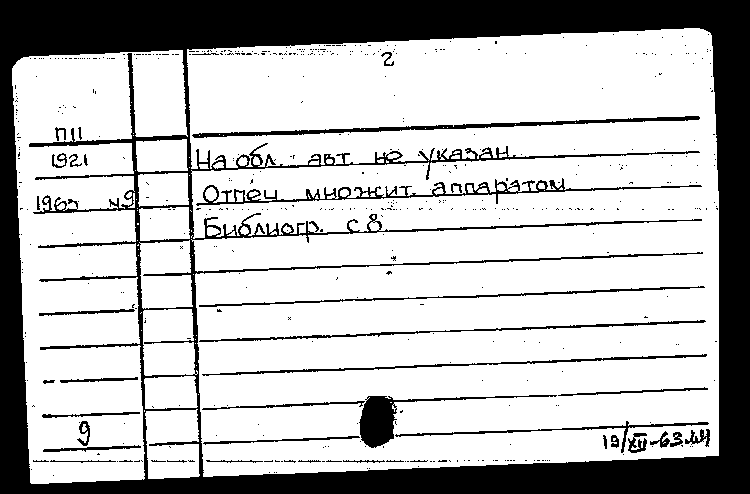 2
П11
1921 На обл. авт. не указан.
1963 №9 Отпеч. множит. аппаратом
Библиогр. с 8
9
19/XII-63.